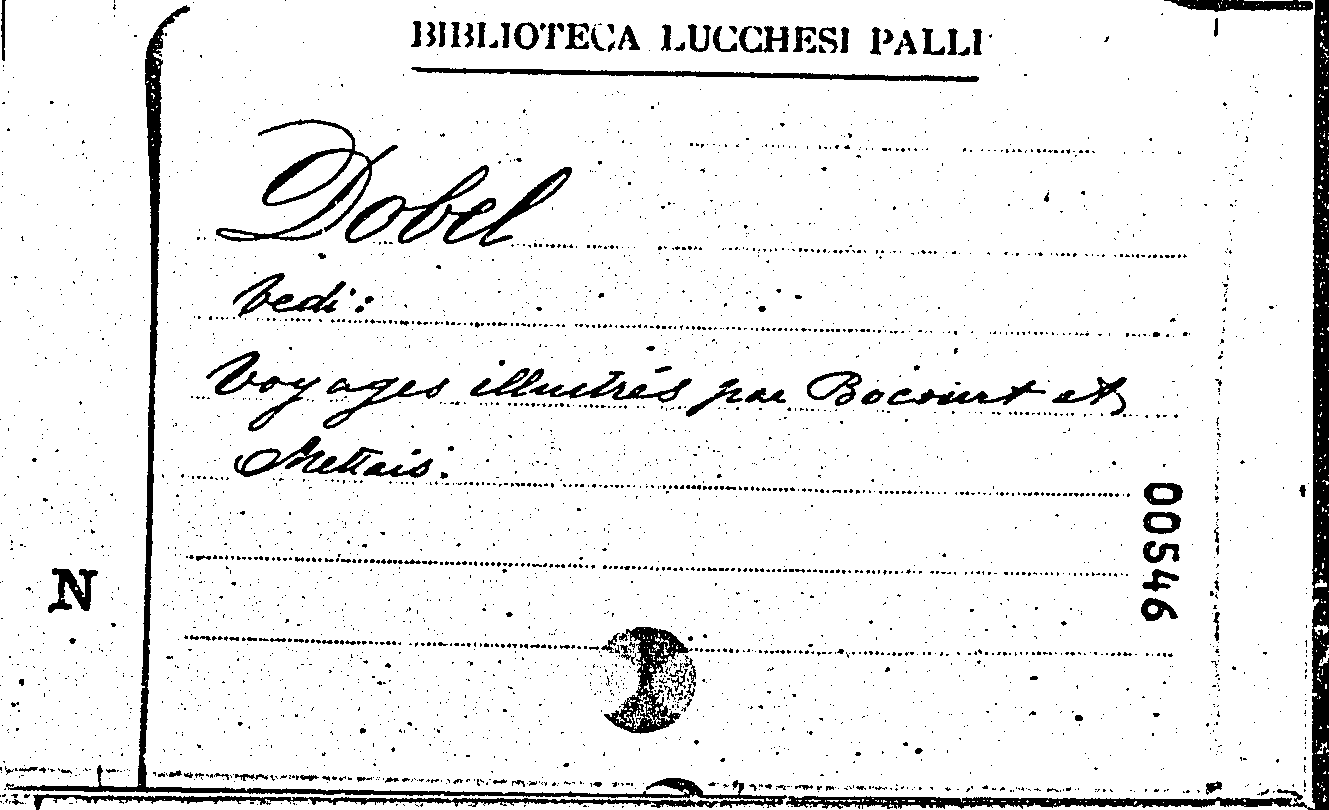 BIBLIOTECA LUCCHESI PALLI
Dobel
Vedi:
Voyages illustrés par Bocourt et
Mettais.
00546
N